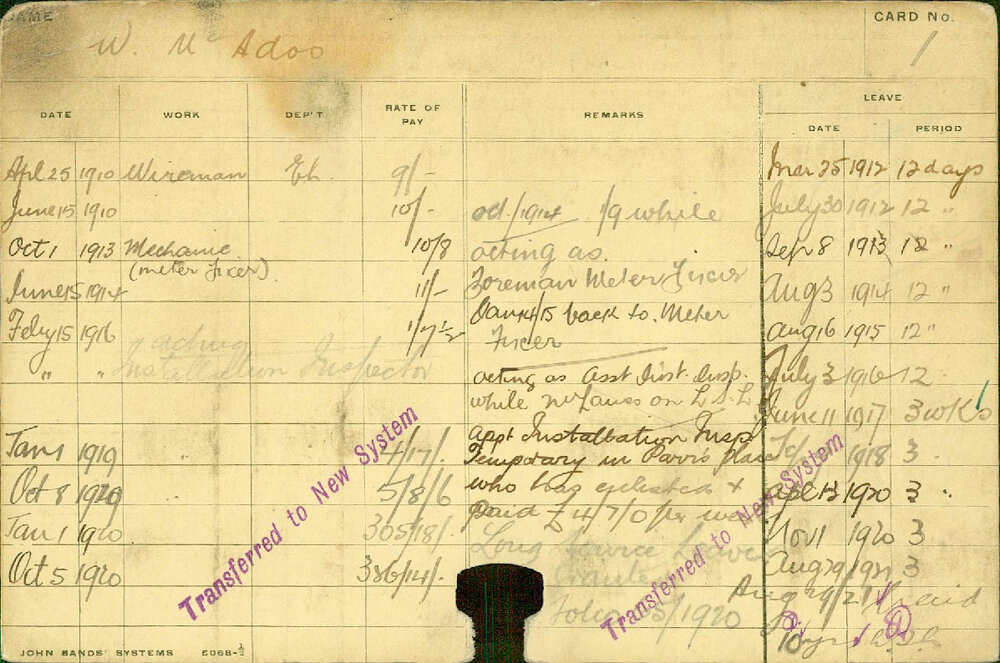 NAME
W. McAdoo
CARD No.
1
DATE WORK DEP'T. RATE OF PAY REMARKS LEAVE
DATE PERIOD
Apl 25 1910 Wireman Eh. 9/- Mar 25 1912 12 days
June 15 1910 10/- Oct/1914 1/9 while July 30 1912 12 "
Oct 1 1913 Mechanic 10/8 acting as. Sep 8 1913 12 "
(meter Fixer)
June 15 1914 11/- Foreman Meter Fixer Aug 3 1914 12 "
Feby 15 1916 1/7½ Jan 14/15 back to Meter Aug 16 1915 12 "
Fixer
acting
" " Installation Inspector acting as Asst Inst. Insp. July 3 1916 12
while on L.S.L. June 11 1917 3 wks
Jan 1 1919 4/17/- appt Installation Insp 1918 3
Temporary in place
Oct 8 1920 5/8/6 who has enlisted & Apl 13 1920 3 "
Paid £4/7/0 per
Jan 1 1920 305/18/- Long Service Leave Nov 1 1920 3
Oct 5 1920 386/14/- Aug 29 1921 3
Aug 29/21
1920
10 yrs L.S.L
Transferred to New System
Transferred to New System
JOHN SANDS' SYSTEMS 5068-½